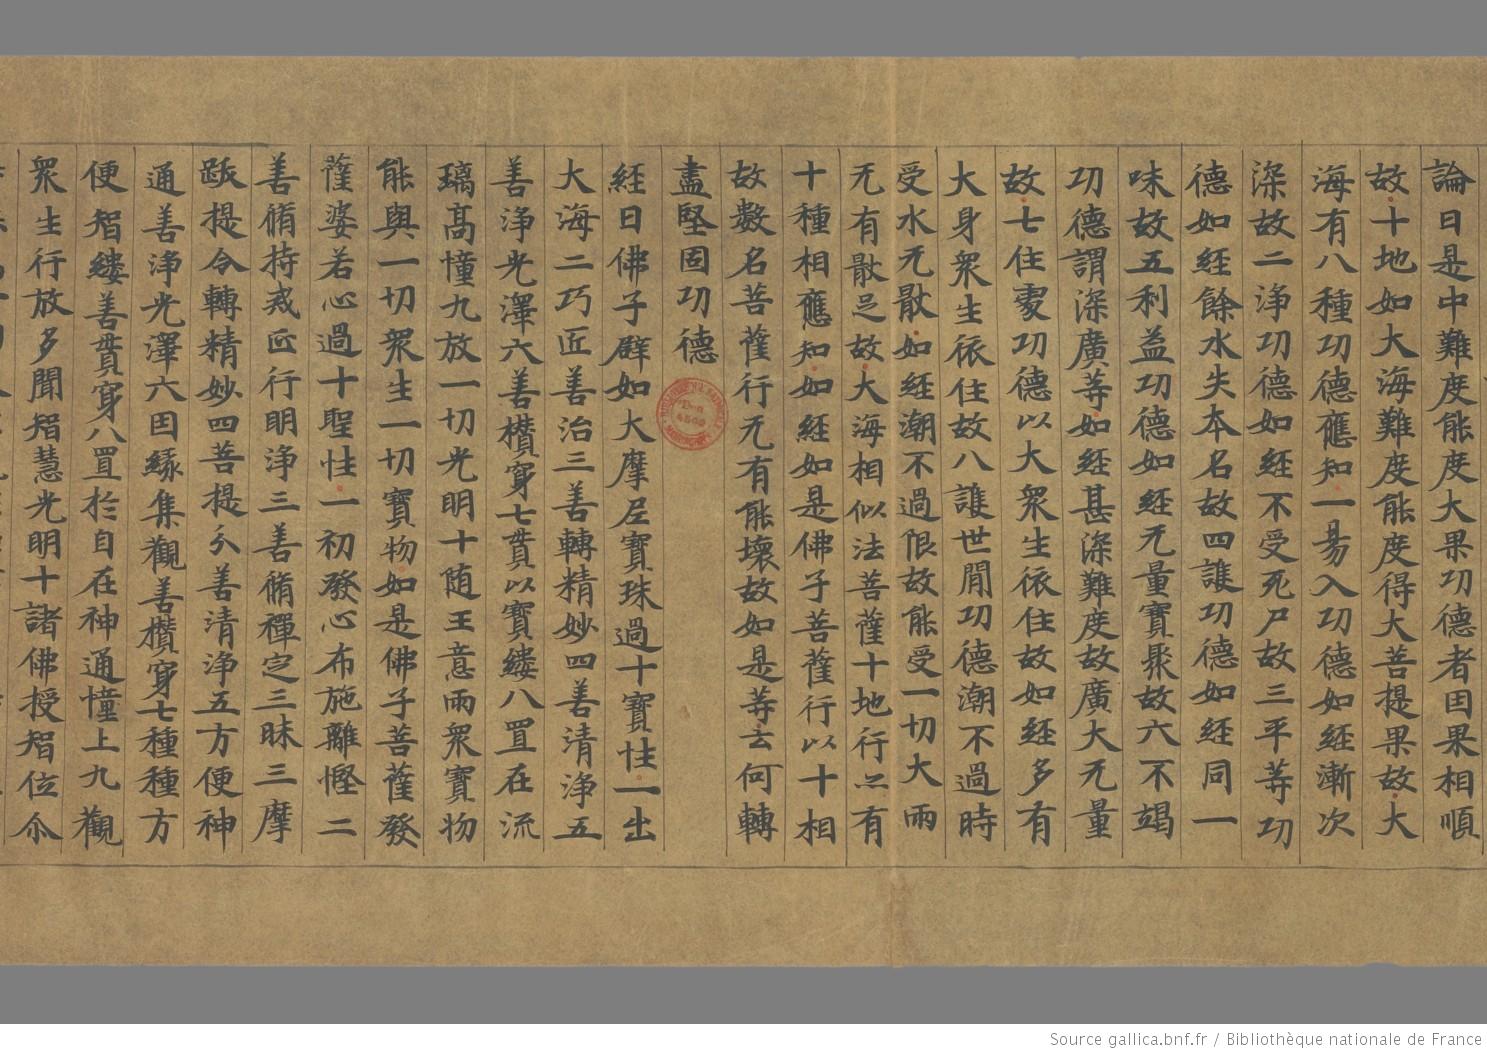 論曰是中難度能度大果功德者因果相順
故十地如大海難度能度得大菩提果故大
海有八種功德應知一易入功德如經漸次
深故二淨功德如經不受死尸故三平等功
德如經餘水失本名故四護功德如經同一
味故五利益功德如經无量寶聚故六不竭
功德謂深廣等如經甚深難度故廣大无量
故七住處功德以大衆生依住故如經多有
大身衆生依住故八護世間功德潮不過時
受水无猒如經潮不過限故能受一切大雨
无有猒足故大海相似法菩薩十地行亦有
十種相應知如經如是佛子菩薩行以十相
故數名菩薩行无有能壞故如是等云何轉
盡堅固功德
經曰佛子辟如大摩尼寶珠過十寶性一出
大海二巧匠善治三善轉精妙四善清淨五
善淨光澤六善欑穿七貫以寶縷八置在流
璃高幢九放一切光明十随王意雨衆寶物
能與一切衆生一切寶物如是佛子菩薩發
薩婆若心過十聖性一初發心布施離慳二
善脩持戒匠行明淨三善脩禪定三昧三摩
跋提令轉精妙四菩提分善清淨五方便神
通善淨光澤六因緣集觀善欑穿七種種方
便智縷善貫穿八置於自在神通幢上九觀
衆生行放多聞智慧光明十諸佛授智位尒
Source gallica.bnf.fr / Bibliothèque nationale de France